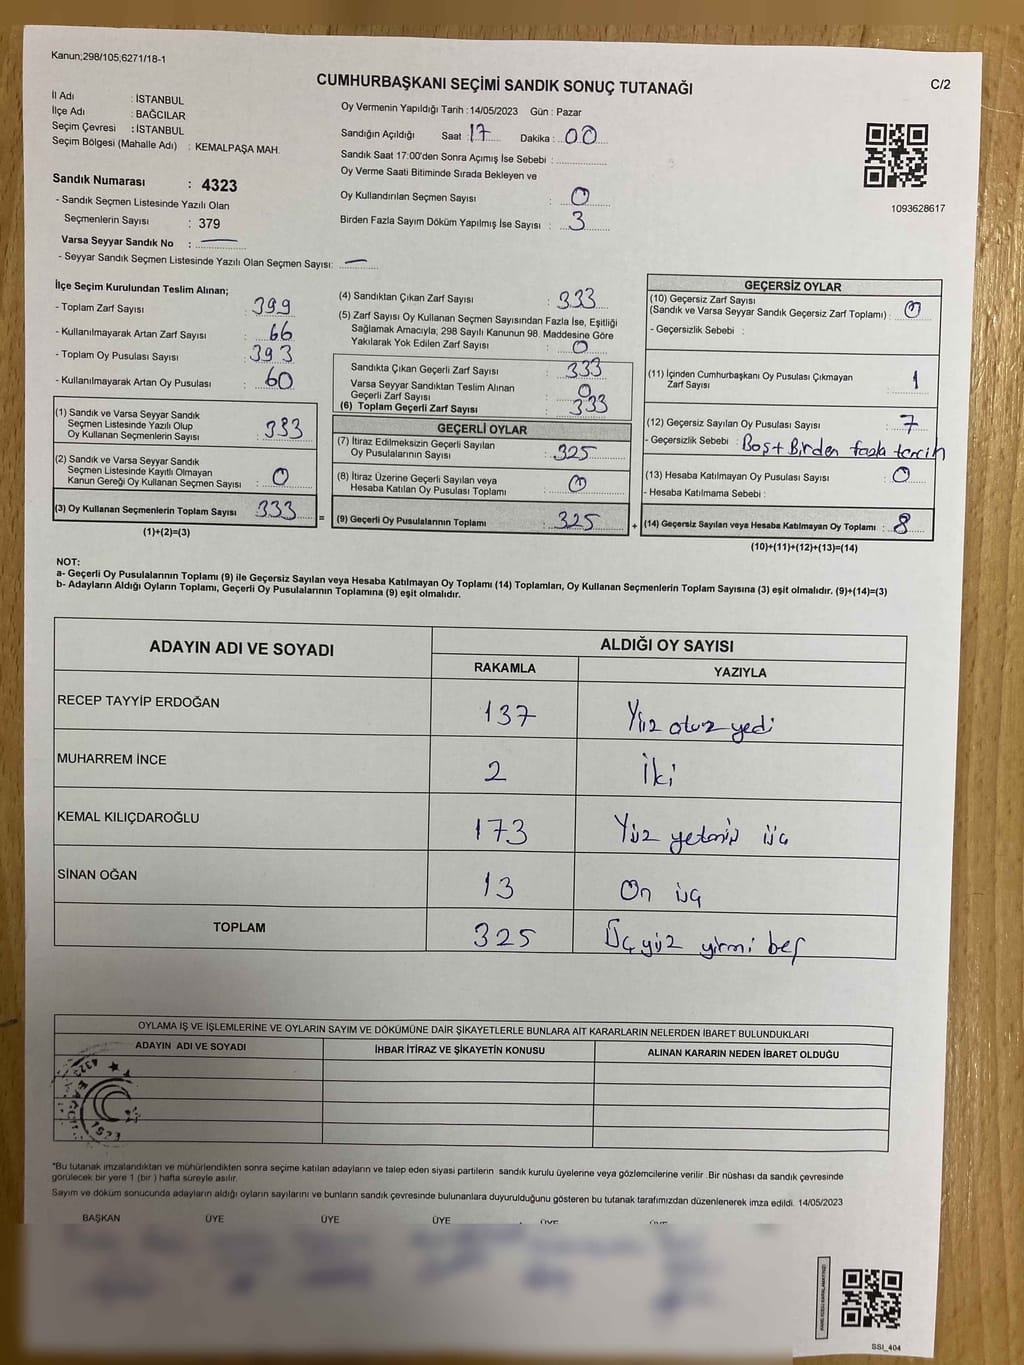 Kanun;298/105,6271/18-1
CUMHURBAŞKANI SEÇİMİ SANDIK SONUÇ TUTANAĞI
C/2
İl Adı : İSTANBUL
İlçe Adı : BAĞCILAR
Seçim Çevresi : İSTANBUL
Seçim Bölgesi (Mahalle Adı) : KEMALPAŞA MAH.
Sandık Numarası : 4323
- Sandık Seçmen Listesinde Yazılı Olan
Seçmenlerin Sayısı : 379
Varsa Seyyar Sandık No :
- Seyyar Sandık Seçmen Listesinde Yazılı Olan Seçmen Sayısı:
Oy Vermenin Yapıldığı Tarih : 14/05/2023 Gün : Pazar
Sandığın Açıldığı Saat : 17 Dakika : 00
Sandık Saat 17:00'den Sonra Açımış İse Sebebi :
Oy Verme Saati Bitiminde Sırada Bekleyen ve
Oy Kullandırılan Seçmen Sayısı : 0
Birden Fazla Sayım Döküm Yapılmış İse Sayısı : 3
1093628617
İlçe Seçim Kurulundan Teslim Alınan;
- Toplam Zarf Sayısı : 399
- Kullanılmayarak Artan Zarf Sayısı : 66
- Toplam Oy Pusulası Sayısı : 393
- Kullanılmayarak Artan Oy Pusulası : 60
(1) Sandık ve Varsa Seyyar Sandık
Seçmen Listesinde Yazılı Olup
Oy Kullanan Seçmenlerin Sayısı : 333
(2) Sandık ve Varsa Seyyar Sandık
Seçmen Listesinde Kayıtlı Olmayan
Kanun Gereği Oy Kullanan Seçmen Sayısı : 0
(3) Oy Kullanan Seçmenlerin Toplam Sayısı : 333
(1)+(2)=(3)
=
(4) Sandıktan Çıkan Zarf Sayısı : 333
(5) Zarf Sayısı Oy Kullanan Seçmen Sayısından Fazla İse, Eşitliği
Sağlamak Amacıyla; 298 Sayılı Kanunun 98. Maddesine Göre
Yakılarak Yok Edilen Zarf Sayısı : 0
Sandıkta Çıkan Geçerli Zarf Sayısı : 333
Varsa Seyyar Sandıktan Teslim Alınan
Geçerli Zarf Sayısı : 0
(6) Toplam Geçerli Zarf Sayısı : 333
GEÇERLİ OYLAR
(7) İtiraz Edilmeksizin Geçerli Sayılan
Oy Pusulalarının Sayısı : 325
(8) İtiraz Üzerine Geçerli Sayılan veya
Hesaba Katılan Oy Pusulası Toplamı : 0
(9) Geçerli Oy Pusulalarının Toplamı : 325
+
GEÇERSİZ OYLAR
(10) Geçersiz Zarf Sayısı
(Sandık ve Varsa Seyyar Sandık Geçersiz Zarf Toplamı) : 0
- Geçersizlik Sebebi :
(11) İçinden Cumhurbaşkanı Oy Pusulası Çıkmayan
Zarf Sayısı : 1
(12) Geçersiz Sayılan Oy Pusulası Sayısı : 7
- Geçersizlik Sebebi : Boş + Birden fazla tercih
(13) Hesaba Katılmayan Oy Pusulası Sayısı : 0
- Hesaba Katılmama Sebebi :
(14) Geçersiz Sayılan veya Hesaba Katılmayan Oy Toplamı : 8
(10)+(11)+(12)+(13)=(14)
NOT:
a- Geçerli Oy Pusulalarının Toplamı (9) ile Geçersiz Sayılan veya Hesaba Katılmayan Oy Toplamı (14) Toplamları, Oy Kullanan Seçmenlerin Toplam Sayısına (3) eşit olmalıdır. (9)+(14)=(3)
b- Adayların Aldığı Oyların Toplamı, Geçerli Oy Pusulalarının Toplamına (9) eşit olmalıdır.
ADAYIN ADI VE SOYADI ALDIĞI OY SAYISI
RAKAMLA YAZIYLA
RECEP TAYYİP ERDOĞAN 137 Yüz otuz yedi
MUHARREM İNCE 2 İki
KEMAL KILIÇDAROĞLU 173 Yüz yetmiş üç
SİNAN OĞAN 13 On üç
TOPLAM 325 Üç yüz yirmi beş
OYLAMA İŞ VE İŞLEMLERİNE VE OYLARIN SAYIM VE DÖKÜMÜNE DAİR ŞİKAYETLERLE BUNLARA AİT KARARLARIN NELERDEN İBARET BULUNDUKLARI
ADAYIN ADI VE SOYADI İHBAR İTİRAZ VE ŞİKAYETİN KONUSU ALINAN KARARIN NEDEN İBARET OLDUĞU
4323
*Bu tutanak imzalandıktan ve mühürlendikten sonra seçime katılan adayların ve talep eden siyasi partilerin sandık kurulu üyelerine veya gözlemcilerine verilir. Bir nüshası da sandık çevresinde
görülecek bir yere 1 (bir ) hafta süreyle asılır.
Sayım ve döküm sonucunda adayların aldığı oyların sayılarını ve bunların sandık çevresinde bulunanlara duyurulduğunu gösteren bu tutanak tarafımızdan düzenlenerek imza edildi. 14/05/2023
BAŞKAN ÜYE ÜYE ÜYE ÜYE ÜYE
SSI_404